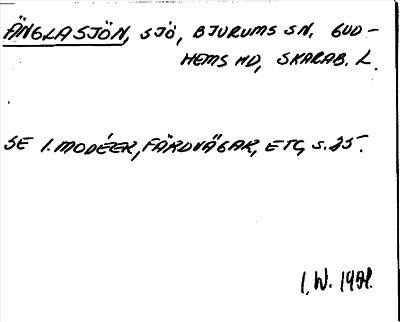 ÄNGLASJÖN, SJÖ, BJURUMS SN, GUD-
HEMS HD, SKARAB. L.
SE I. MODÉER, FÄRDVÄGAR, ETC, S. 25.
I. W.